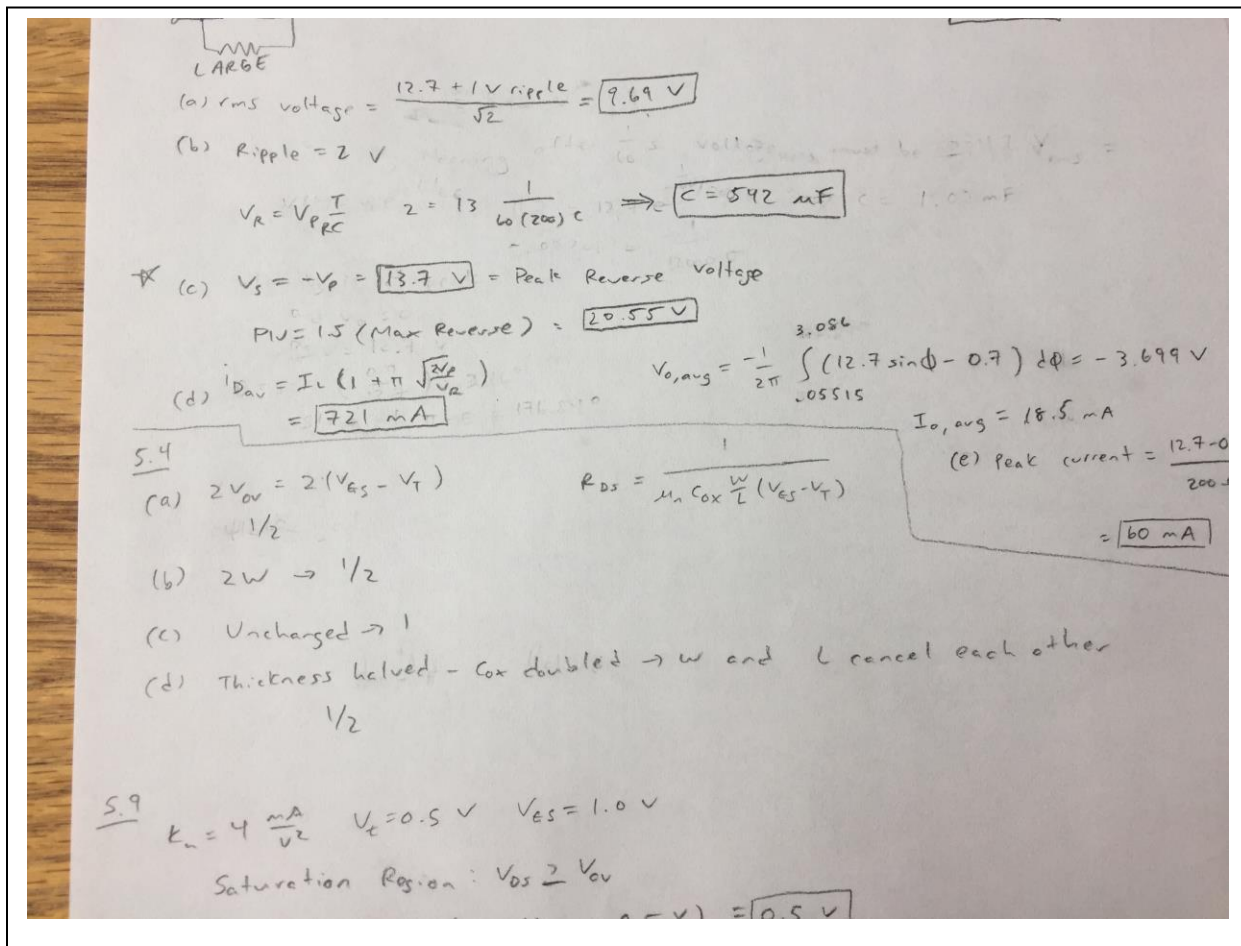 LARGE
(a) rms voltage = (12.7 + 1 V ripple)/√2 = 9.69 V
(b) Ripple = 2 V
V_R = V_P T/RC    2 = 13 1/(60(200)C) ⇒ C = 542 μF
(c) V_s = -V_P = 13.7 V = Peak Reverse Voltage
PIV = 1.5 (Max Reverse) = 20.55 V
(d) i_Dav = I_L (1 + π √(2V_P/V_R))
= 721 mA
V_o,avg = -1/2π ∫ from .05515 to 3.086 (12.7 sinϕ - 0.7) dϕ = -3.699 V
I_o,avg = 18.5 mA
(e) Peak current = 12.7-0 / 200
= 60 mA
5.4
(a) 2V_ov = 2(V_GS - V_T)
1/2
R_DS = 1/(μ_n C_ox W/L (V_GS - V_T))
(b) 2W → 1/2
(c) Unchanged → 1
(d) Thickness halved - Cox doubled → W and L cancel each other
1/2
5.9
k_n = 4 mA/V² V_t = 0.5 V V_GS = 1.0 V
Saturation Region: V_DS ≥ V_ov
= 0.5 V